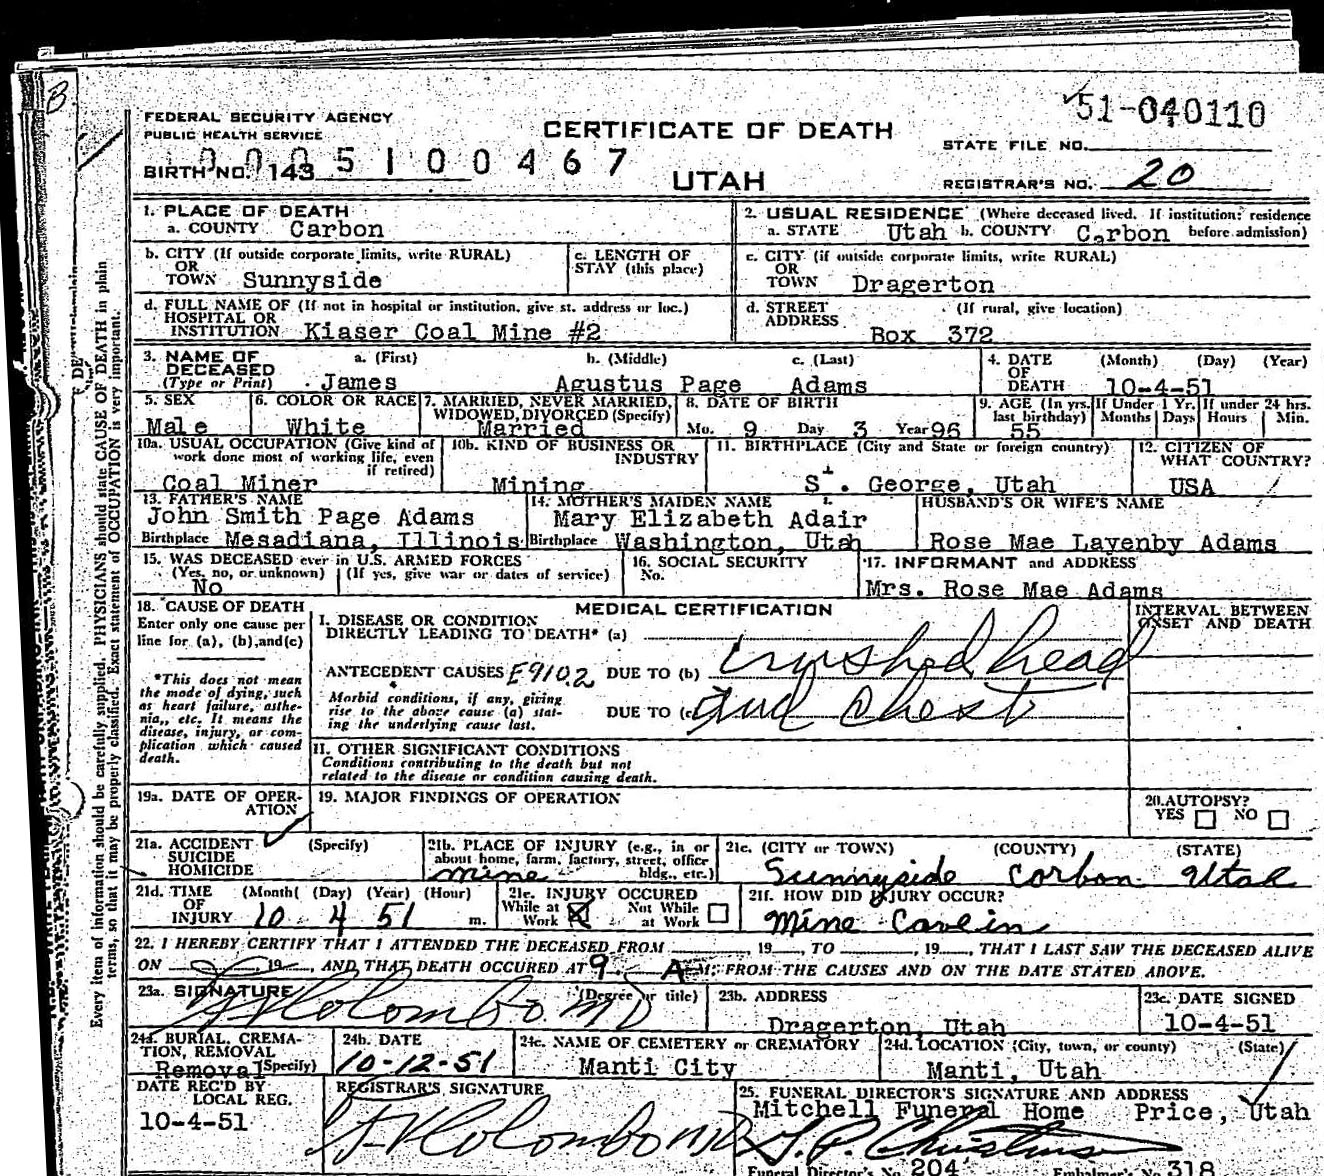 B
51-040110
FEDERAL SECURITY AGENCY
PUBLIC HEALTH SERVICE
CERTIFICATE OF DEATH
STATE FILE NO.
0005100467
BIRTH NO. 143
UTAH
REGISTRAR'S NO. 20
1. PLACE OF DEATH
a. COUNTY Carbon
2. USUAL RESIDENCE (Where deceased lived. If institution: residence
a. STATE Utah b. COUNTY Carbon before admission)
b. CITY (If outside corporate limits, write RURAL)
OR
TOWN Sunnyside
c. LENGTH OF
STAY (this place)
c. CITY (if outside corporate limits, write RURAL)
OR
TOWN Dragerton
d. FULL NAME OF (If not in hospital or institution, give st. address or loc.)
HOSPITAL OR
INSTITUTION Kiaser Coal Mine #2
d. STREET (If rural, give location)
ADDRESS
Box 372
3. NAME OF DECEASED a. (First) b. (Middle) c. (Last)
(Type or Print) James Agustus Page Adams
4. DATE (Month) (Day) (Year)
OF
DEATH 10-4-51
5. SEX
Male
6. COLOR OR RACE
White
7. MARRIED, NEVER MARRIED,
WIDOWED, DIVORCED (Specify)
Married
8. DATE OF BIRTH
Mo. 9 Day 3 Year 96
9. AGE (In yrs. last birthday)
55
If Under 1 Yr.
Months Days
If under 24 hrs.
Hours Min.
10a. USUAL OCCUPATION (Give kind of
work done most of working life, even
if retired)
Coal Miner
10b. KIND OF BUSINESS OR
INDUSTRY
Mining
11. BIRTHPLACE (City and State or foreign country)
St. George, Utah
12. CITIZEN OF
WHAT COUNTRY?
USA
13. FATHER'S NAME
John Smith Page Adams
Birthplace Mesadiana, Illinois
14. MOTHER'S MAIDEN NAME
Mary Elizabeth Adair
Birthplace Washington, Utah
HUSBAND'S OR WIFE'S NAME
Rose Mae Layenby Adams
15. WAS DECEASED ever in U.S. ARMED FORCES
(Yes, no, or unknown) (If yes, give war or dates of service)
No
16. SOCIAL SECURITY
No.
17. INFORMANT and ADDRESS
Mrs. Rose Mae Adams
18. CAUSE OF DEATH
Enter only one cause per
line for (a), (b), and (c)
*This does not mean
the mode of dying, such
as heart failure, asthe-
nia,, etc. It means the
disease, injury, or com-
plication which caused
death.
MEDICAL CERTIFICATION
I. DISEASE OR CONDITION
DIRECTLY LEADING TO DEATH* (a)
ANTECEDENT CAUSES E910.2 DUE TO (b) crushed head
Morbid conditions, if any, giving
rise to the above cause (a) stat-
ing the underlying cause last.
DUE TO (c) and chest
II. OTHER SIGNIFICANT CONDITIONS
Conditions contributing to the death but not
related to the disease or condition causing death.
INTERVAL BETWEEN
ONSET AND DEATH
19a. DATE OF OPER-
ATION
19. MAJOR FINDINGS OF OPERATION
20. AUTOPSY?
YES NO
21a. ACCIDENT (Specify)
SUICIDE
HOMICIDE
21b. PLACE OF INJURY (e.g., in or
about home, farm, factory, street, office
bldg., etc.)
mine
21c. (CITY or TOWN) (COUNTY) (STATE)
Sunnyside Carbon Utah
21d. TIME (Month) (Day) (Year) (Hour)
OF
INJURY 10 4 51 m.
21e. INJURY OCCURED
While at Work Not While at Work
21f. HOW DID INJURY OCCUR?
Mine Cave in
22. I HEREBY CERTIFY THAT I ATTENDED THE DECEASED FROM 19, TO , 19, THAT I LAST SAW THE DECEASED ALIVE
ON 19, AND THAT DEATH OCCURED AT 9. A M; FROM THE CAUSES AND ON THE DATE STATED ABOVE.
23a. SIGNATURE (Degree or title)
Colombo MD
23b. ADDRESS
Dragerton, Utah
23c. DATE SIGNED
10-4-51
24a. BURIAL, CREMA-
TION, REMOVAL
Removal (Specify)
24b. DATE
10-12-51
24c. NAME OF CEMETERY or CREMATORY
Manti City
24d. LOCATION (City, town, or county) (State)
Manti, Utah
DATE REC'D BY
LOCAL REG.
10-4-51
REGISTRAR'S SIGNATURE
Colombo MD
25. FUNERAL DIRECTOR'S SIGNATURE AND ADDRESS
Mitchell Funeral Home Price, Utah
Funeral Director's No. 204 Embalmer's No. 318
Every item of information should be carefully supplied. PHYSICIANS should state CAUSE OF DEATH in plain
terms, so that it may be properly classified. Exact statement of OCCUPATION is very important.